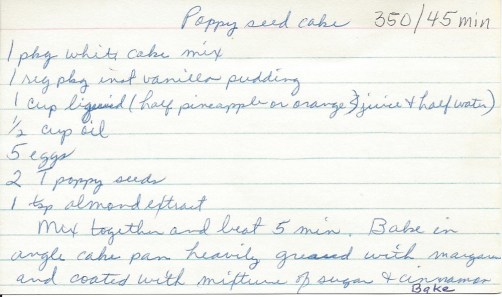 Poppy seed cake 350/45 min
1 pkg white cake mix
1 reg pkg inst vanilla pudding
1 cup liquid (half pineapple or orange juice & half water)
1/2 cup oil
5 eggs
2 T poppy seeds
1 tsp almond extract
Mix together and beat 5 min. Bake in
angle cake pan heavily greased with margarine
and coated with mixture of sugar & cinnamon
Bake